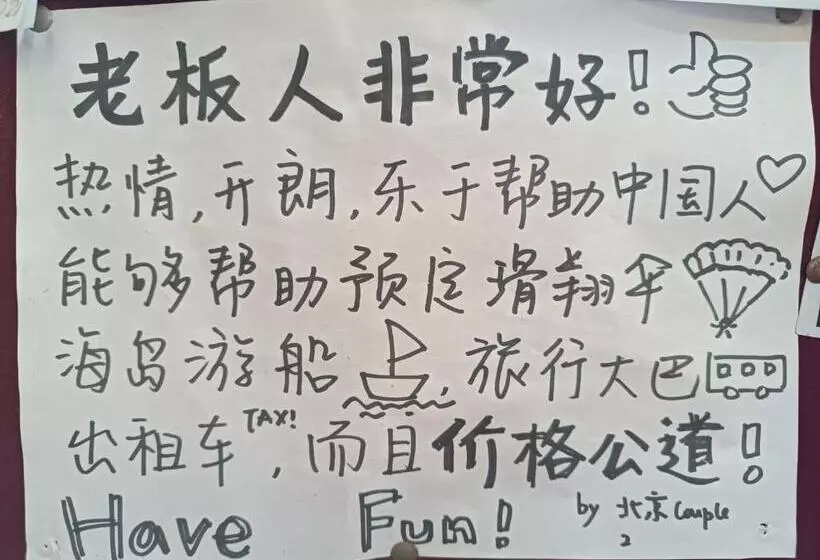 老板人非常好!
热情,开朗,乐于帮助中国人
能够帮助预定滑翔伞
海岛游船,旅行大巴
出租车TAXI,而且价格公道!
Have Fun! by 北京Couple
2